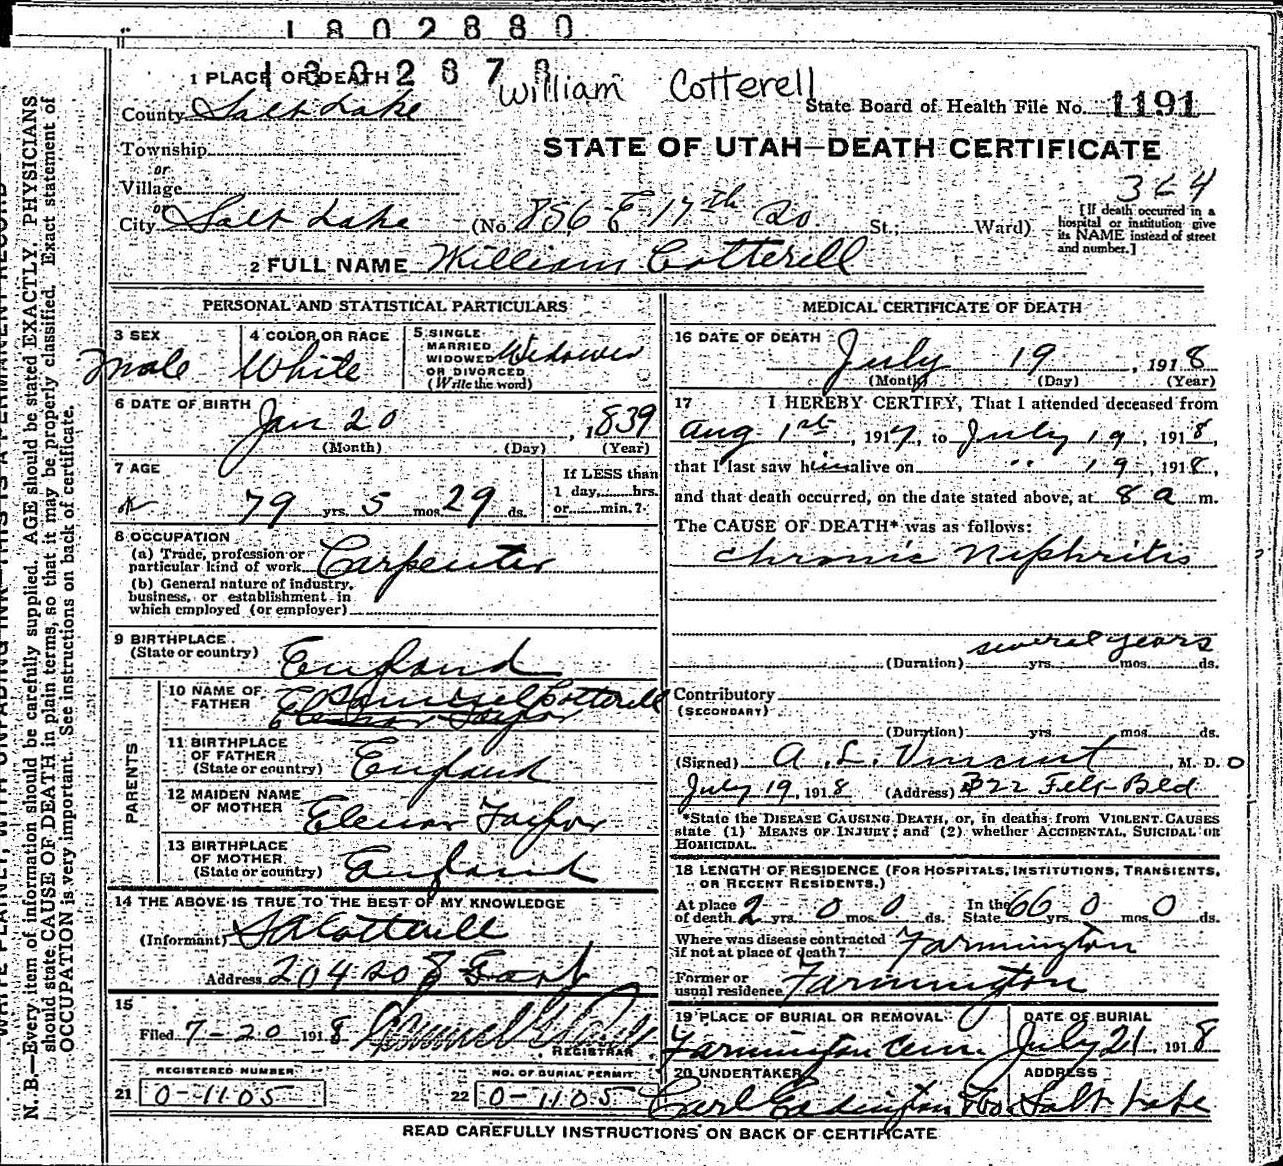 1802880
1802879
William Cotterell
1 PLACE OF DEATH
County Salt Lake
State Board of Health File No. 1191
Township
STATE OF UTAH—DEATH CERTIFICATE
or
Village
or
City Salt Lake (No. 856 E 17th So. St.; Ward)
364
[If death occurred in a
hospital or institution give
its NAME instead of street
and number.]
2 FULL NAME William Cotterell
PERSONAL AND STATISTICAL PARTICULARS
3 SEX
Male
4 COLOR OR RACE
White
5 SINGLE
MARRIED
WIDOWED
OR DIVORCED
(Write the word)
Widower
6 DATE OF BIRTH
Jan 20, 1839
(Month) (Day) (Year)
7 AGE
79 yrs. 5 mos. 29 ds.
If LESS than
1 day, hrs.
or min.?
8 OCCUPATION
(a) Trade, profession or
particular kind of work Carpenter
(b) General nature of industry,
business, or establishment in
which employed (or employer)
9 BIRTHPLACE
(State or country) England
PARENTS
10 NAME OF
FATHER
Samuel Cotterell
Elenor Taylor
11 BIRTHPLACE
OF FATHER
(State or country) England
12 MAIDEN NAME
OF MOTHER Elenor Taylor
13 BIRTHPLACE
OF MOTHER
(State or country) England
14 THE ABOVE IS TRUE TO THE BEST OF MY KNOWLEDGE
(Informant) S A Cotterell
Address 204 So 8 East
15
Filed 7-20 1918
REGISTRAR
REGISTERED NUMBER
21 0-1105
NO. OF BURIAL PERMIT
22 0-1105
MEDICAL CERTIFICATE OF DEATH
16 DATE OF DEATH
July 19, 1918
(Month) (Day) (Year)
17 I HEREBY CERTIFY, That I attended deceased from
Aug 1st, 1917, to July 19, 1918,
that I last saw him alive on " 19, 1918,
and that death occurred, on the date stated above, at 8 a m.
The CAUSE OF DEATH* was as follows:
Chronic Niphritis
several years
(Duration) yrs. mos. ds.
Contributory
(SECONDARY)
(Duration) yrs. mos. ds.
(Signed) A. L. Vincent, M. D. O
July 19, 1918 (Address) 322 Felt Bld
*State the DISEASE CAUSING DEATH, or, in deaths from VIOLENT CAUSES
state (1) MEANS OF INJURY; and (2) whether ACCIDENTAL, SUICIDAL OR
HOMICIDAL.
18 LENGTH OF RESIDENCE (FOR HOSPITALS, INSTITUTIONS, TRANSIENTS,
OR RECENT RESIDENTS.)
At place
of death 2 yrs. 0 mos. 0 ds.
In the
State 66 yrs. 0 mos. 0 ds.
Where was disease contracted
if not at place of death? Farmington
Former or
usual residence Farmington
19 PLACE OF BURIAL OR REMOVAL
Farmington Cem.
DATE OF BURIAL
July 21, 1918
20 UNDERTAKER
ADDRESS
Salt Lake
READ CAREFULLY INSTRUCTIONS ON BACK OF CERTIFICATE
WRITE PLAINLY, WITH UNFADING INK—THIS IS A PERMANENT RECORD
N. B.—Every item of information should be carefully supplied. AGE should be stated EXACTLY. PHYSICIANS
should state CAUSE OF DEATH in plain terms, so that it may be properly classified. Exact statement of
OCCUPATION is very important. See instructions on back of certificate.